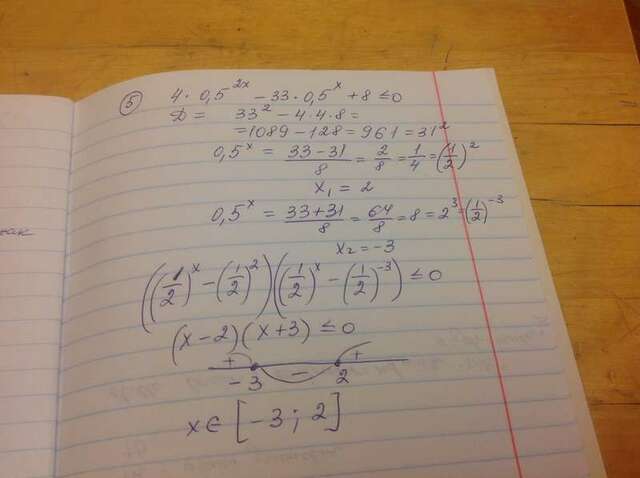 ⑤ 4·0,5^2x − 33·0,5^x + 8 ≤ 0
D = 33² − 4·4·8 =
= 1089 − 128 = 961 = 31²
0,5^x = (33−31)/8 = 2/8 = 1/4 = (1/2)²
x₁ = 2
0,5^x = (33+31)/8 = 64/8 = 8 = 2³ = (1/2)^−3
x₂ = −3
((1/2)^x − (1/2)²)((1/2)^x − (1/2)^−3) ≤ 0
(x−2)(x+3) ≤ 0
+ − +
−3 2
x ∈ [−3; 2]